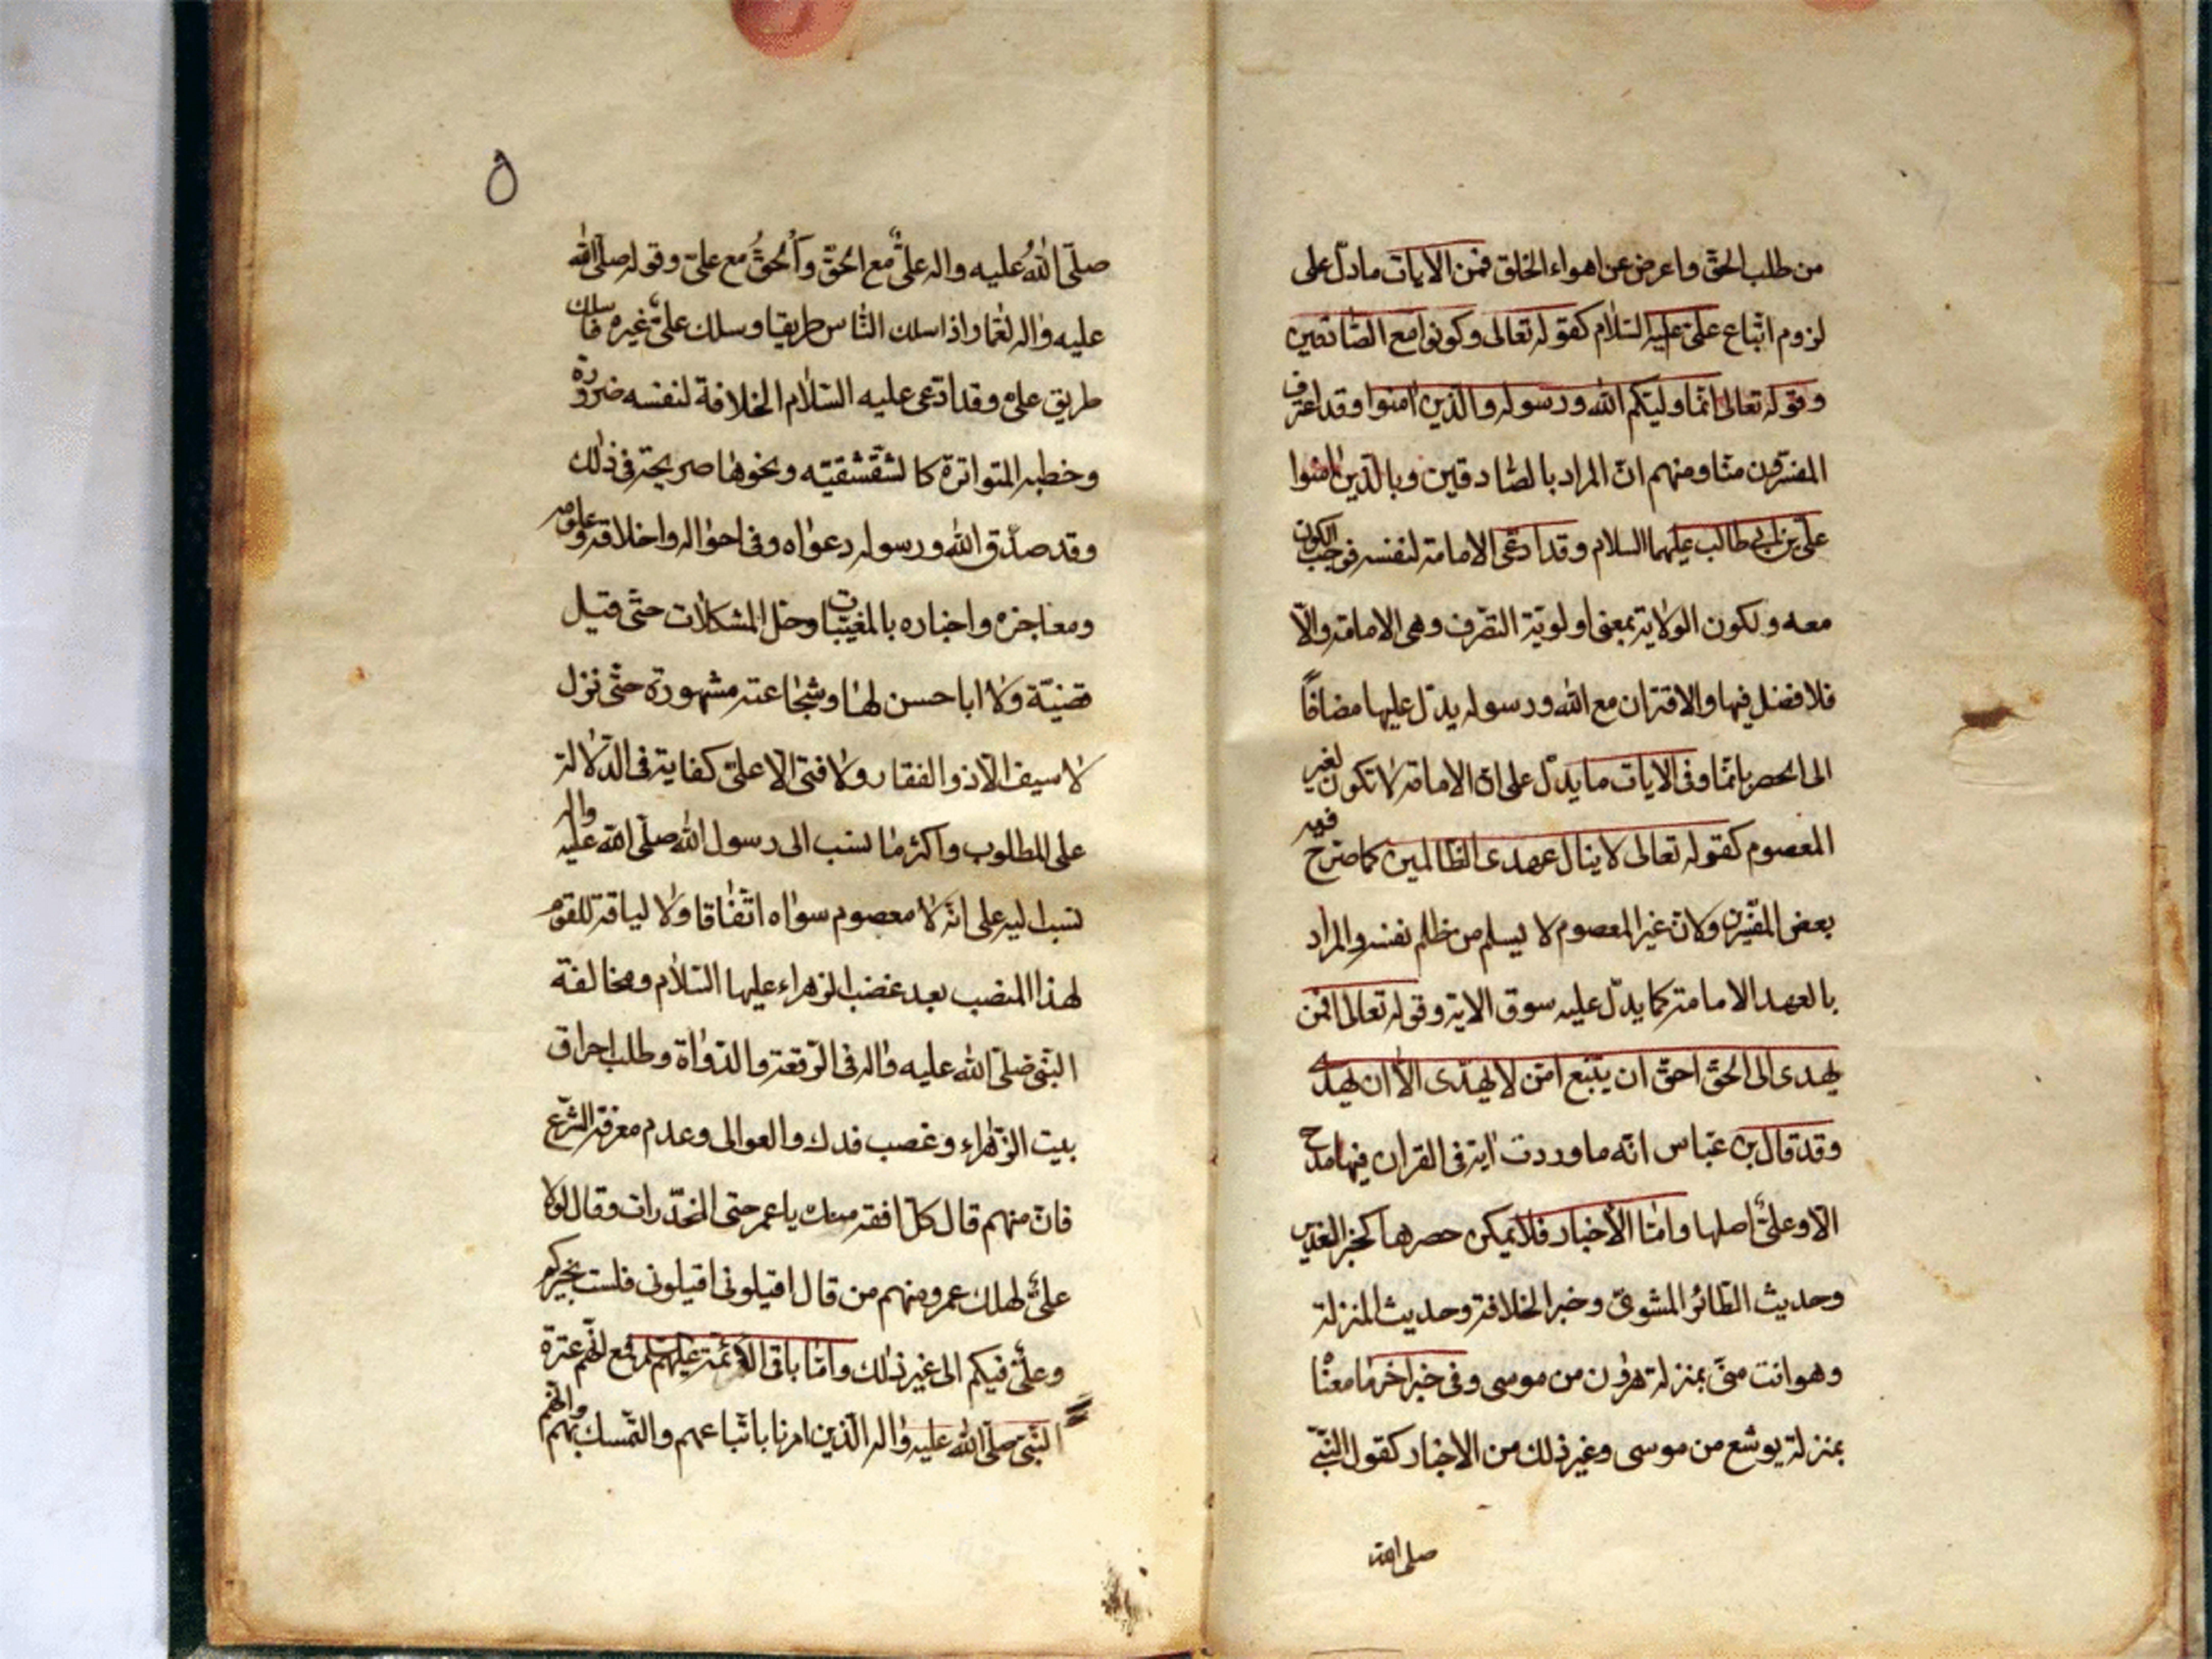 من طلب الحقّ واعرض عن اهواء الخلق فمن الايات مادلّ على
لزوم اتّباع علىّ عليه السّلام كقوله تعالى وكونوا مع الصّادقين
وقوله تعالى انّما وليّكم الله ورسوله والّذين امنوا وقد اعترف
المفسّرون منّا ومنهم انّ المراد بالصّادقين وبالّذين امنوا
علىّ بن ابى طالب عليهما السلام وقد ادّعى الامامة لنفسه فوجب الكون
معه ولكون الولاية بمعنى اولويّة التصّرف وهى الامامة والّا
فلا فضل فيها والاقتران مع الله ورسوله يدلّ عليها مضافاً
الى الحصر بانّما وفى الايات ما يدلّ على انّ الامامة لا تكون لغير
المعصوم كقوله تعالى لا ينال عهدى الظّالمين كما صرّح فيه
بعض المفسّرين ولانّ غير المعصوم لا يسلم من ظلم نفسه والمراد
بالعهد الامامة كما يدلّ عليه سوق الاية وقوله تعالى افمن
يهدى الى الحقّ احقّ ان يتّبع امّن لا يهدّى الّا ان يهدى
وقد قال بن عبّاس انّه ما وردت اية فى القران فيها مدح
الّا وعلىّ اصلها وامّا الأخبار فلا يمكن حصرها كخبر الغدير
وحديث الطّائر المشوىّ وخبر الخلافة وحديث المنزلة
وهو انت منّى بمنزلة هرون من موسى وفى خبر اخر ما معنٰاه
بمنزلة يوشع من موسى وغير ذلك من الاخبار كقول النّبىّ
صلى الله
۵
صلّى اللهُ عليه واله علىٌّ مع الحقّ وَالحقُّ مع علىّ وقوله صلّى الله
عليه واله لعمّار اذا سلك النّاس طريقا وسلك علىّ غيره فاسلك
طريق على وقد ادّعى عليه السّلام الخلافة لنفسه ضرورة
وخطبه المتواترة كالشّقشقيّه ونحوها صريحة فى ذلك
وقد صدّق الله ورسوله دعواه وفى احواله واخلاقه وعلومه
ومعاجزه واخباره بالمغيّبات وحلّ المشكلات حتّى قيل
قضيّة ولا ابا حسن لها وشجاعته مشهورة حتّى نزل
لا سيف الّا ذو الفقار ولا فتى الّا علىّ كفاية فى الدّلالة
على المطلوب واكثر ما نسب الى رسول الله صلّى الله عليه واله
نسب اليه على انّه لا معصوم سواه اتّفاقا ولا لياقة للقوم
لهذا المنصب بعد غضب الزهراء عليها السّلام ومخالفة
النّبى صلّى الله عليه واله فى الرّقعة والدّواة وطلب احراق
بيت الزّهراء وغصب فدك والعوالى وعدم معرفة الشّرع
فانّ منهم قال كلّ افقه منك يا عمر حتى المخدّرات وقال لولا
علىٌّ لهلك عمر ومنهم من قال اقيلونى اقيلونى فلست بخيركم
وعلىّ فيكم الى غير ذلك وامّا باقى الائمة عليهم السلم فمع انّهم عترة
النّبى صلّى الله عليه واله الّذين امرنا باتّباعهم والتّمسك بهم وانّهم